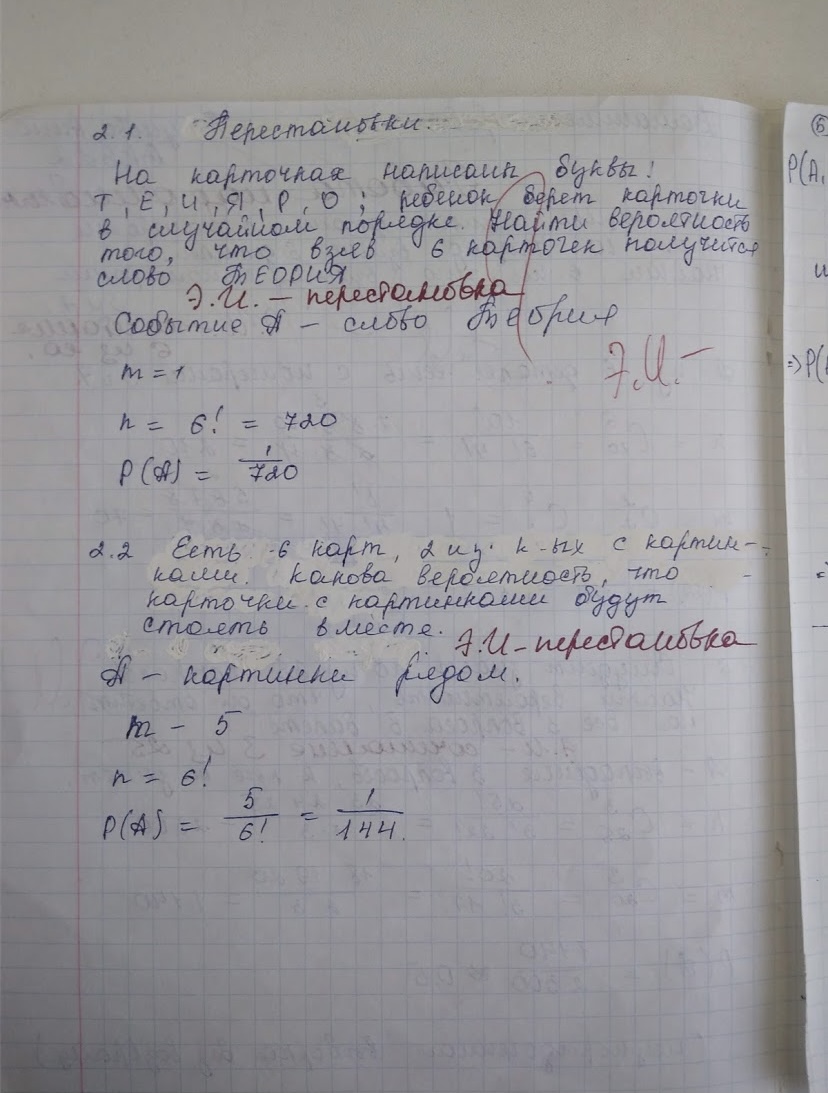 2.1. Перестановки.
На карточках написаны буквы:
Т, Е, И, Я, Р, О ; ребенок берет карточки
в случайном порядке. Найти вероятность
того, что взяв 6 карточек получится
слово ТЕОРИЯ
Э.И. – перестановка
Событие А – слово Теория
Э.И. –
m = 1
n = 6! = 720
P(A) = 1/720
2.2 Есть 6 карт, 2 из к-ых с картин-
ками. Какова вероятность, что
карточки с картинками будут
стоять вместе.
Э.И – перестановка
А – картинки рядом.
m – 5
n = 6!
P(A) = 5/6! = 1/144.
6
P(A,
=> P(